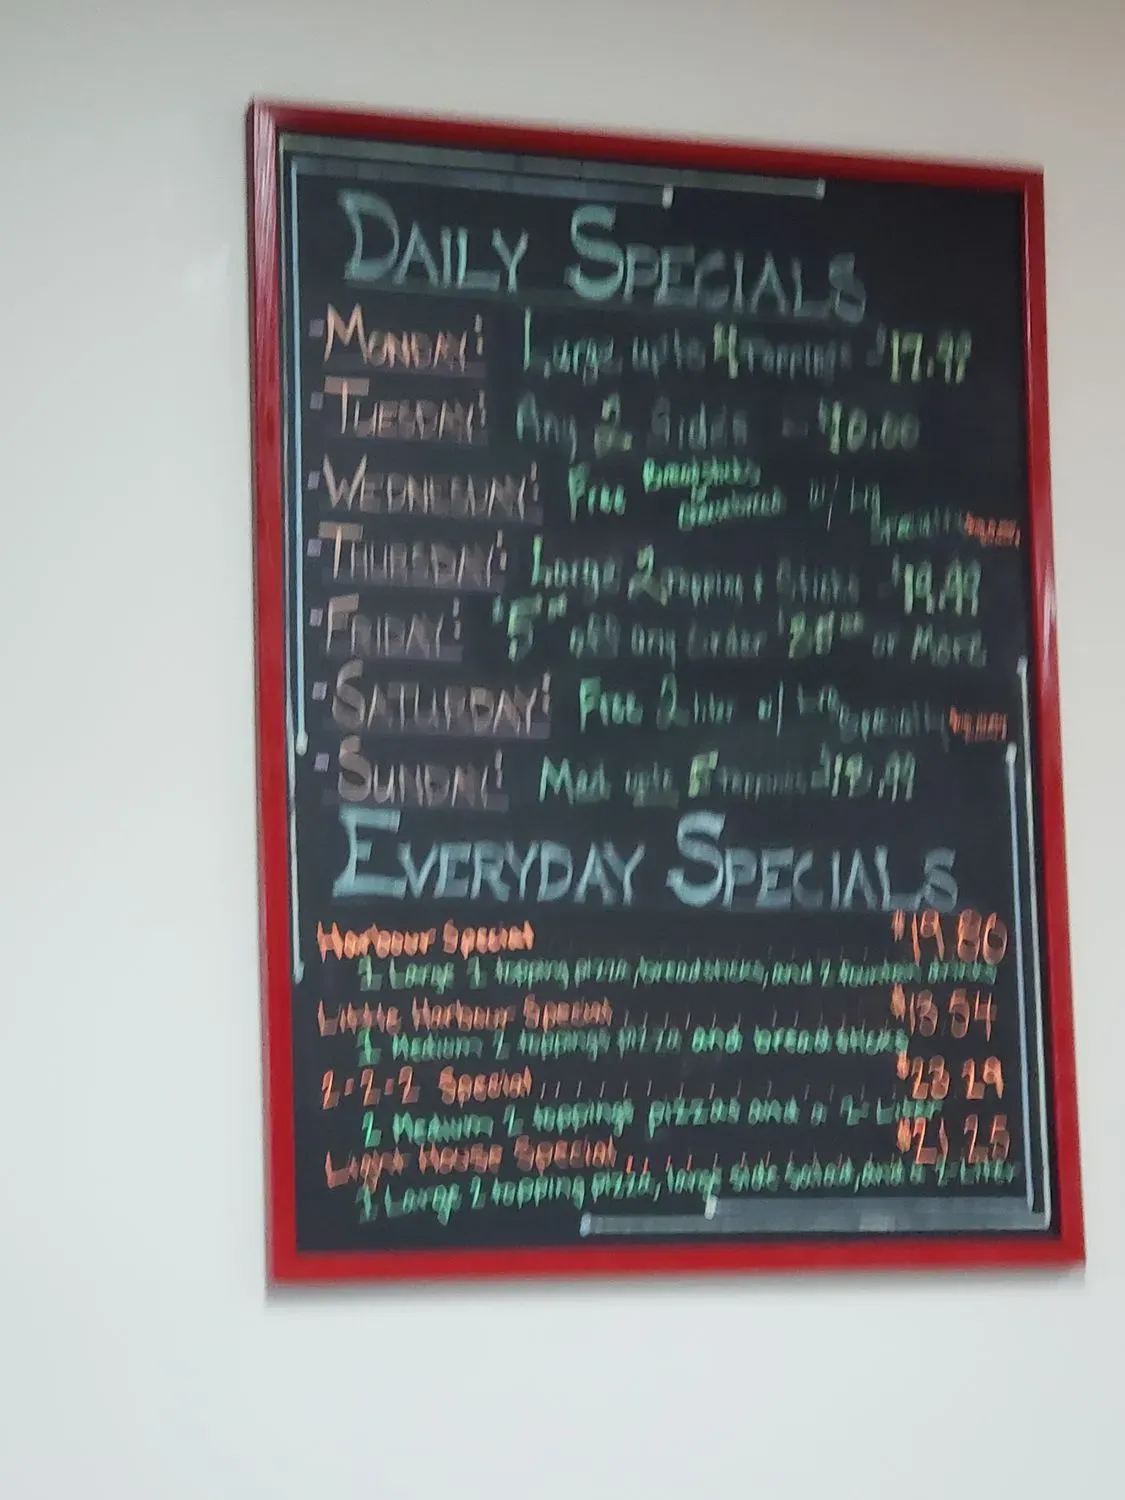 DAILY SPECIALS
MONDAY: Large up to 4 Toppings $17.99
TUESDAY: Any 2 Sides $10.00
WEDNESDAY: Free Breadsticks or w/ Lrg
Specialty
THURSDAY: Large 2 Topping + Sticks $19.99
FRIDAY: $5.00 off any order or More
SATURDAY: Free 2 liter w/ Lrg Specialty
SUNDAY: Med up to 5 Toppings
EVERYDAY SPECIALS
Harbour Special $19.80
1 Large 2 topping pizza, breadsticks, and 2 fountain drinks
Little Harbour Special $13.54
1 Medium 2 toppings pizza and breadsticks
2-2-2 Special $23.29
2 Medium 2 toppings pizzas and a 2-Liter
Light House Special $21.25
1 Large 2 topping pizza, large side salad, and a 2-Liter